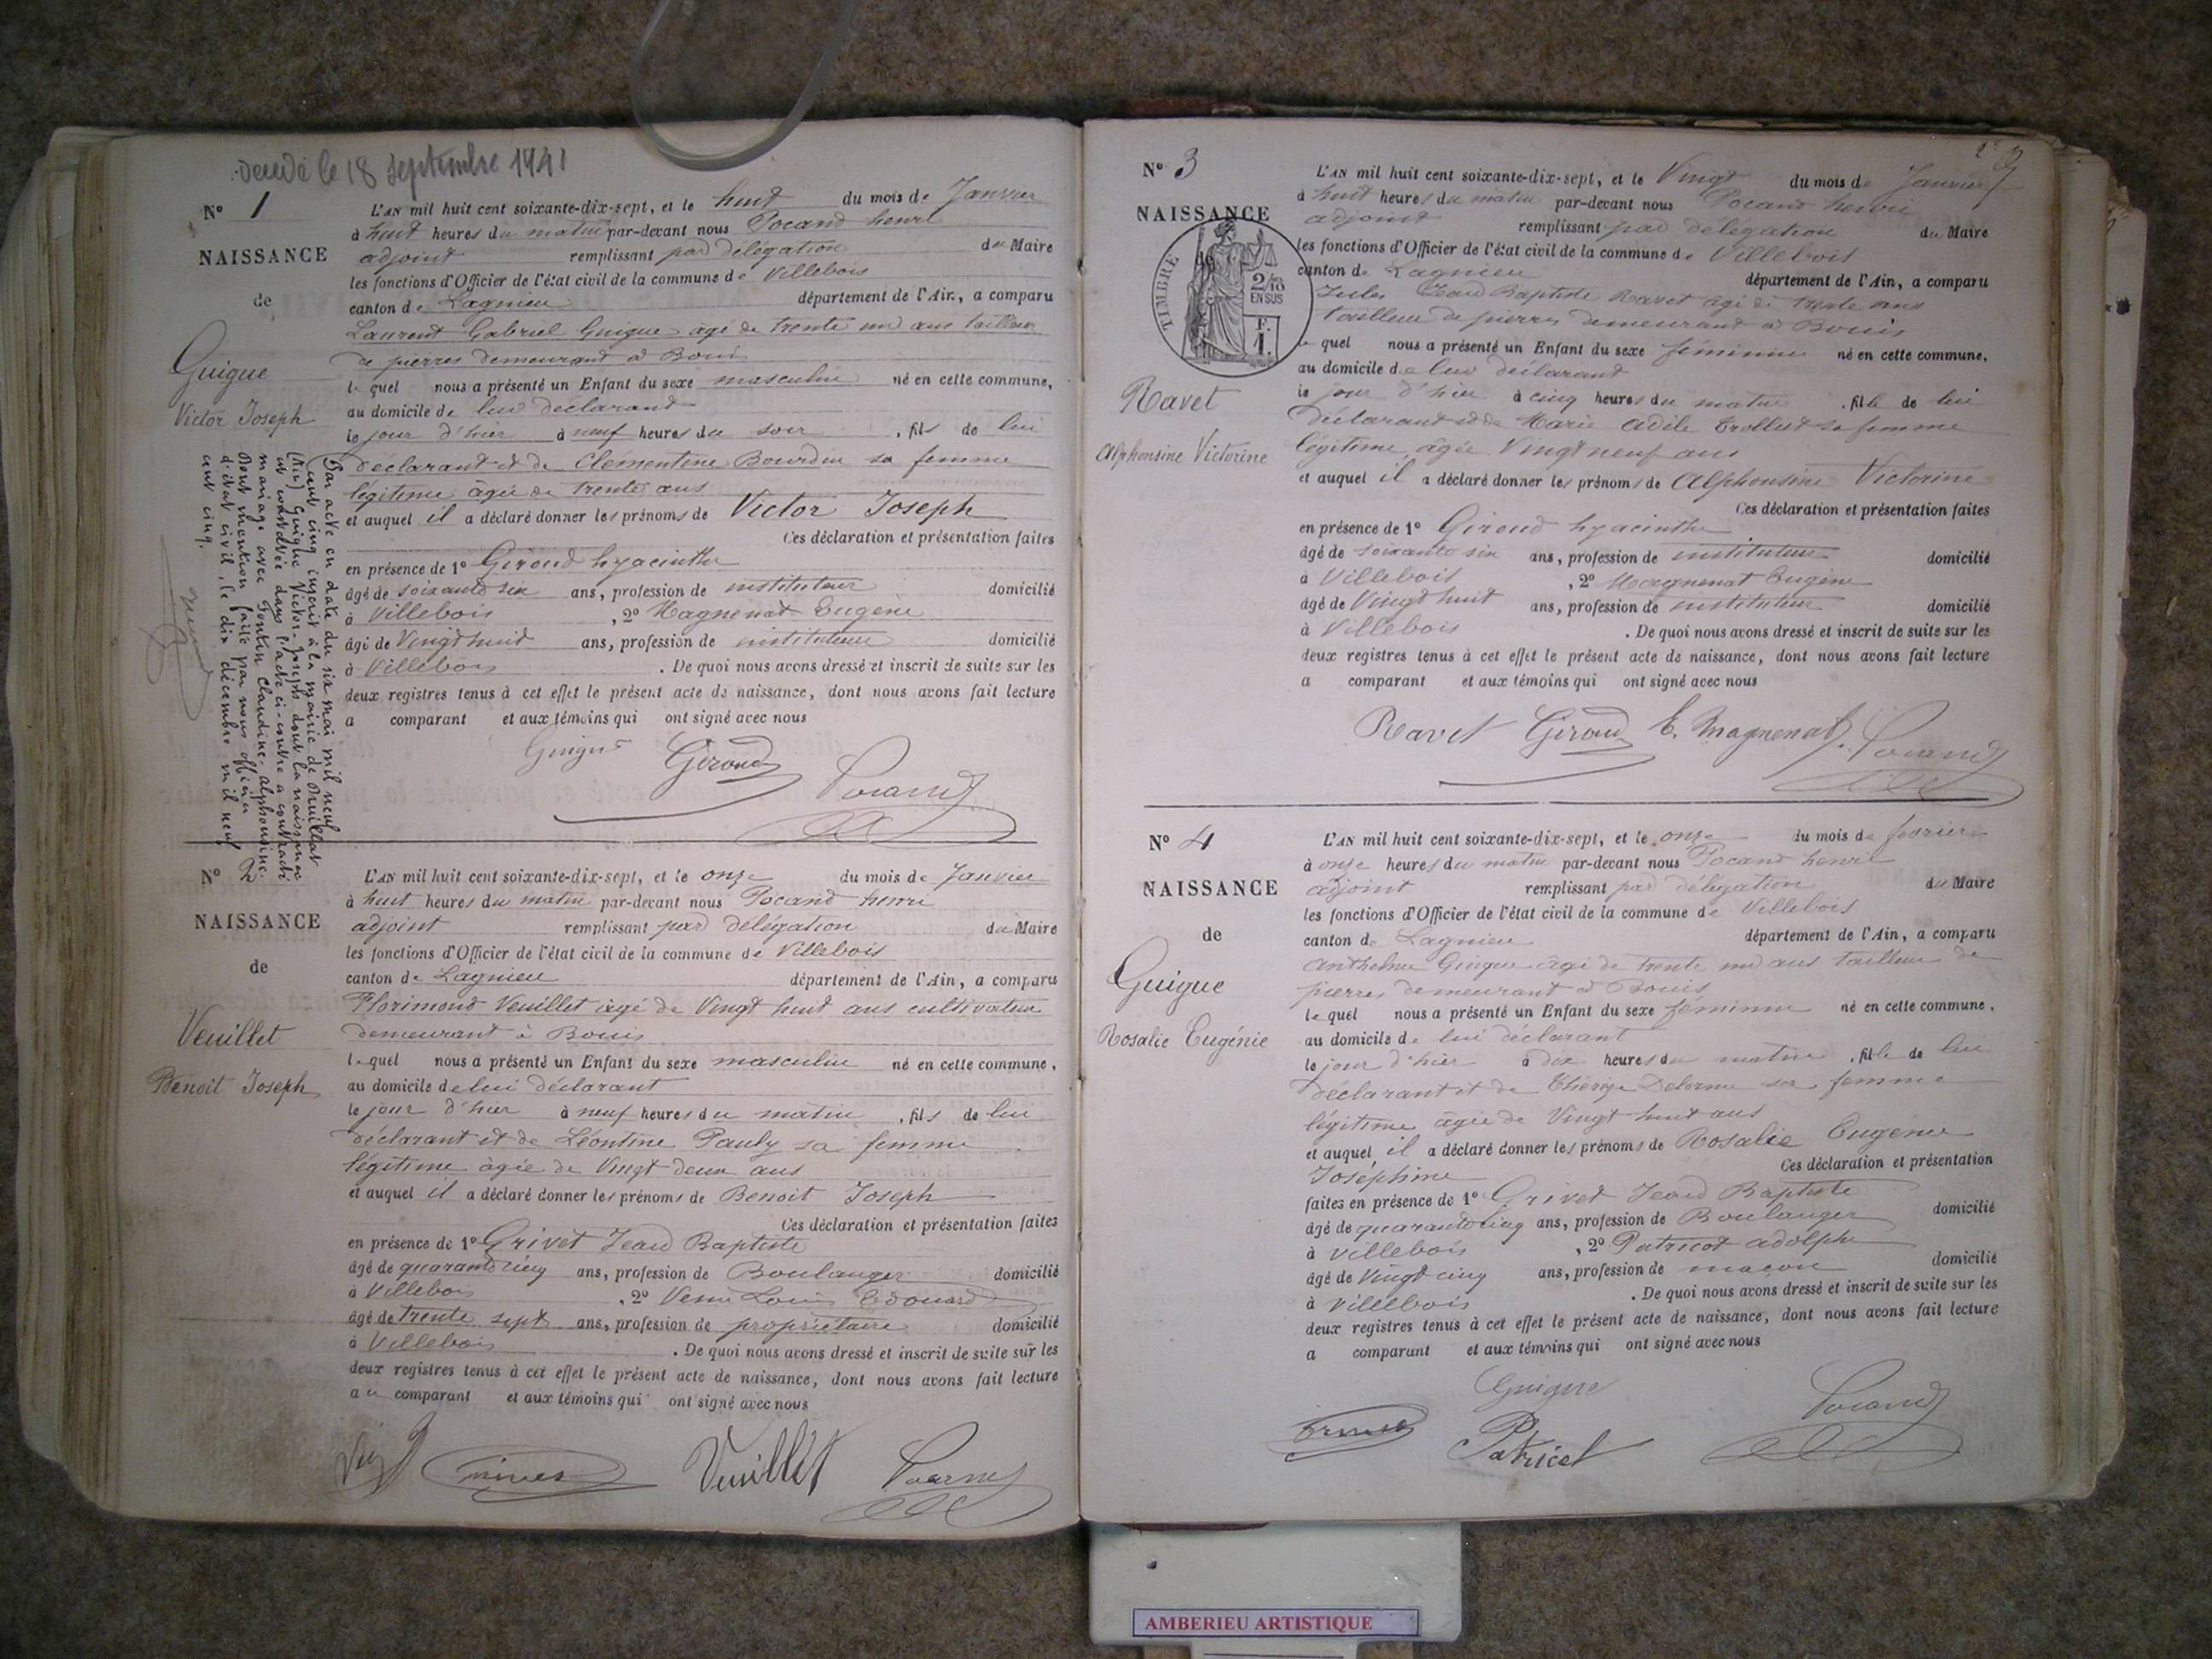 décédé le 18 septembre 1941
N° 1
NAISSANCE
de
Guigue
Victor Joseph
L'AN mil huit cent soixante-dix-sept, et le huit du mois de Janvier
à huit heures du matin par-devant nous Pocand henri
adjoint remplissant par délégation du Maire
les fonctions d'Officier de l'état civil de la commune de Villebois
canton de Lagnieu département de l'Ain, a comparu
Laurent Gabriel Guigue âgé de trente un ans tailleur
de pierres demeurant à Bouis
lequel nous a présenté un Enfant du sexe masculin né en cette commune,
au domicile de lui déclarant
le jour d'hier à neuf heures du soir, fils de lui
déclarant et de Clémentine Bourdin sa femme
légitime âgée de trente ans
et auquel il a déclaré donner les prénoms de Victor Joseph
Ces déclaration et présentation faites
en présence de 1° Giroud hyacinthe
âgé de soixante six ans, profession de instituteur domicilié
à Villebois, 2° Magnenat Eugène
âgé de Vingt huit ans, profession de instituteur domicilié
à Villebois. De quoi nous avons dressé et inscrit de suite sur les
deux registres tenus à cet effet le présent acte de naissance, dont nous avons fait lecture
a comparant et aux témoins qui ont signé avec nous
Guigue Giroud Pocand
Par acte en date du six mai mil neuf
cent cinq inscrit à la mairie de Druillat
(Ain) Guigue Victor-Joseph dont la naissance
est constatée dans l'acte ci-contre a contracté
mariage avec Fontin Claudine-Alphonsine.
Dont mention faite par nous officier
d'état civil, le dix décembre mil neuf
cent cinq.
N° 2
NAISSANCE
de
Veuillet
Benoit Joseph
L'AN mil huit cent soixante-dix-sept, et le onze du mois de Janvier
à huit heures du matin par-devant nous Pocand henri
adjoint remplissant par délégation du Maire
les fonctions d'Officier de l'état civil de la commune de Villebois
canton de Lagnieu département de l'Ain, a comparu
Florimond Veuillet âgé de Vingt huit ans cultivateur
demeurant à Bouis
lequel nous a présenté un Enfant du sexe masculin né en cette commune,
au domicile de lui déclarant
le jour d'hier à neuf heures du matin, fils de lui
déclarant et de Léontine Pauly sa femme
légitime âgée de Vingt deux ans
et auquel il a déclaré donner les prénoms de Benoit Joseph
Ces déclaration et présentation faites
en présence de 1° Grivet Jean Baptiste
âgé de quarante cinq ans, profession de Boulanger domicilié
à Villebois, 2° Louis Edouard
âgé de trente sept ans, profession de propriétaire domicilié
à Villebois. De quoi nous avons dressé et inscrit de suite sur les
deux registres tenus à cet effet le présent acte de naissance, dont nous avons fait lecture
au comparant et aux témoins qui ont signé avec nous
Grivet Veuillet Pocand
N° 3
NAISSANCE
de
TIMBRE
2/10
EN SUS
F.
1.
Ravet
Alphonsine Victorine
L'AN mil huit cent soixante-dix-sept, et le Vingt du mois de Janvier
à huit heures du matin par-devant nous Pocand henri
adjoint remplissant par délégation du Maire
les fonctions d'Officier de l'état civil de la commune de Villebois
canton de Lagnieu département de l'Ain, a comparu
Jules Jean Baptiste Ravet âgé de trente ans
tailleur de pierres demeurant à Bouis
lequel nous a présenté un Enfant du sexe féminin né en cette commune,
au domicile de lui déclarant
le jour d'hier à cinq heures du matin, fille de lui
déclarant et de Marie Adèle Trolliet sa femme
légitime, âgée Vingt neuf ans
et auquel il a déclaré donner les prénoms de Alphonsine Victorine
Ces déclaration et présentation faites
en présence de 1° Giroud hyacinthe
âgé de soixante six ans, profession de instituteur domicilié
à Villebois, 2° Magnenat Eugène
âgé de Vingt huit ans, profession de instituteur domicilié
à Villebois. De quoi nous avons dressé et inscrit de suite sur les
deux registres tenus à cet effet le présent acte de naissance, dont nous avons fait lecture
a comparant et aux témoins qui ont signé avec nous
Ravet Giroud E. Magnenat Pocand
N° 4
NAISSANCE
de
Guigue
Rosalie Eugénie
L'AN mil huit cent soixante-dix-sept, et le onze du mois de fevrier
à onze heures du matin par-devant nous Pocand henri
adjoint remplissant par délégation du Maire
les fonctions d'Officier de l'état civil de la commune de Villebois
canton de Lagnieu département de l'Ain, a comparu
Anthelme Guigue âgé de trente un ans tailleur de
pierres demeurant à Bouis
lequel nous a présenté un Enfant du sexe féminin né en cette commune,
au domicile de lui déclarant
le jour d'hier à dix heures du matin, fille de lui
déclarant et de Thérèze Delorme sa femme
légitime âgée de Vingt huit ans
et auquel il a déclaré donner les prénoms de Rosalie Eugénie
Joséphine Ces déclaration et présentation
faites en présence de 1° Grivet Jean Baptiste
âgé de quarante cinq ans, profession de Boulanger domicilié
à Villebois, 2° Patricot adolphe
âgé de Vingt cinq ans, profession de maçon domicilié
à Villebois. De quoi nous avons dressé et inscrit de suite sur les
deux registres tenus à cet effet le présent acte de naissance, dont nous avons fait lecture
a comparant et aux témoins qui ont signé avec nous
Guigue Pocand
Grivet Patricot
AMBERIEU ARTISTIQUE